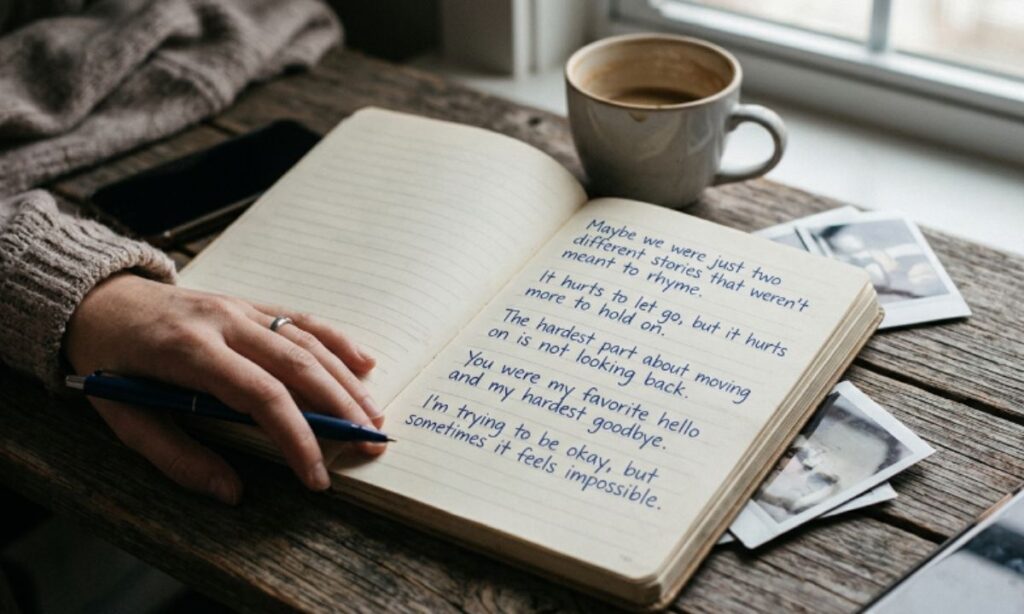 Maybe we were just two
different stories that weren't
meant to rhyme.
It hurts to let go, but it hurts
more to hold on.
The hardest part about moving
on is not looking back.
You were my favorite hello
and my hardest goodbye.
I'm trying to be okay, but
sometimes it feels impossible.